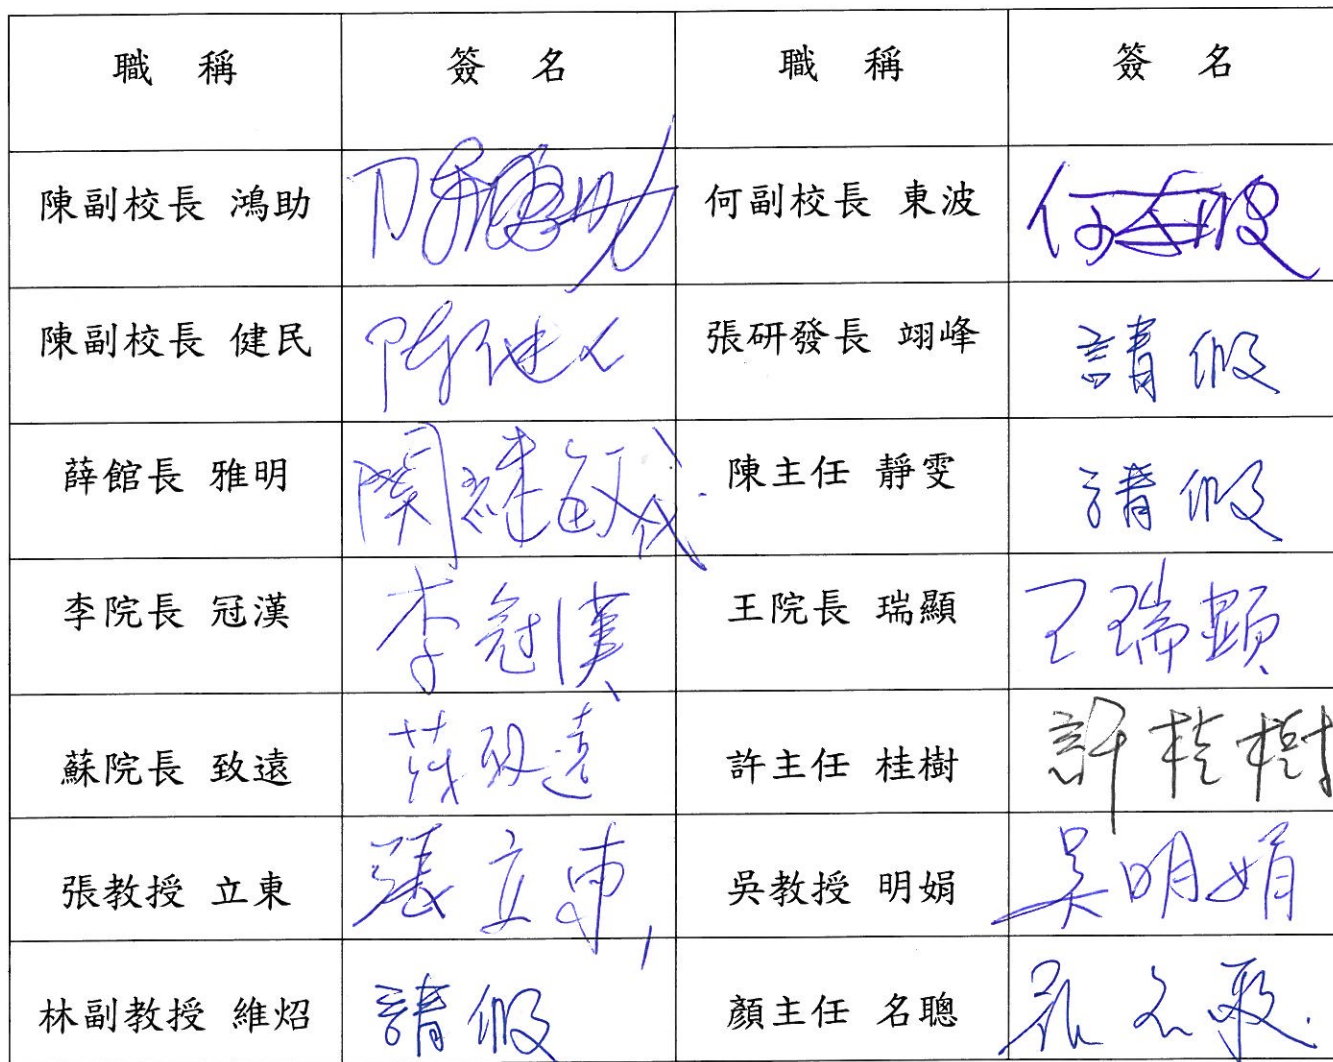 職 稱 簽 名 職 稱 簽 名
陳副校長 鴻助 陳鴻助 何副校長 東波 何東波
陳副校長 健民 陳健民 張研發長 翊峰 請假
薛館長 雅明 關 敏代 陳主任 靜雯 請假
李院長 冠漢 李冠漢 王院長 瑞顯 王瑞顯
蘇院長 致遠 蘇致遠 許主任 桂樹 許桂樹
張教授 立東 張立東 吳教授 明娟 吳明娟
林副教授 維炤 請假 顏主任 名聰 顏名聰